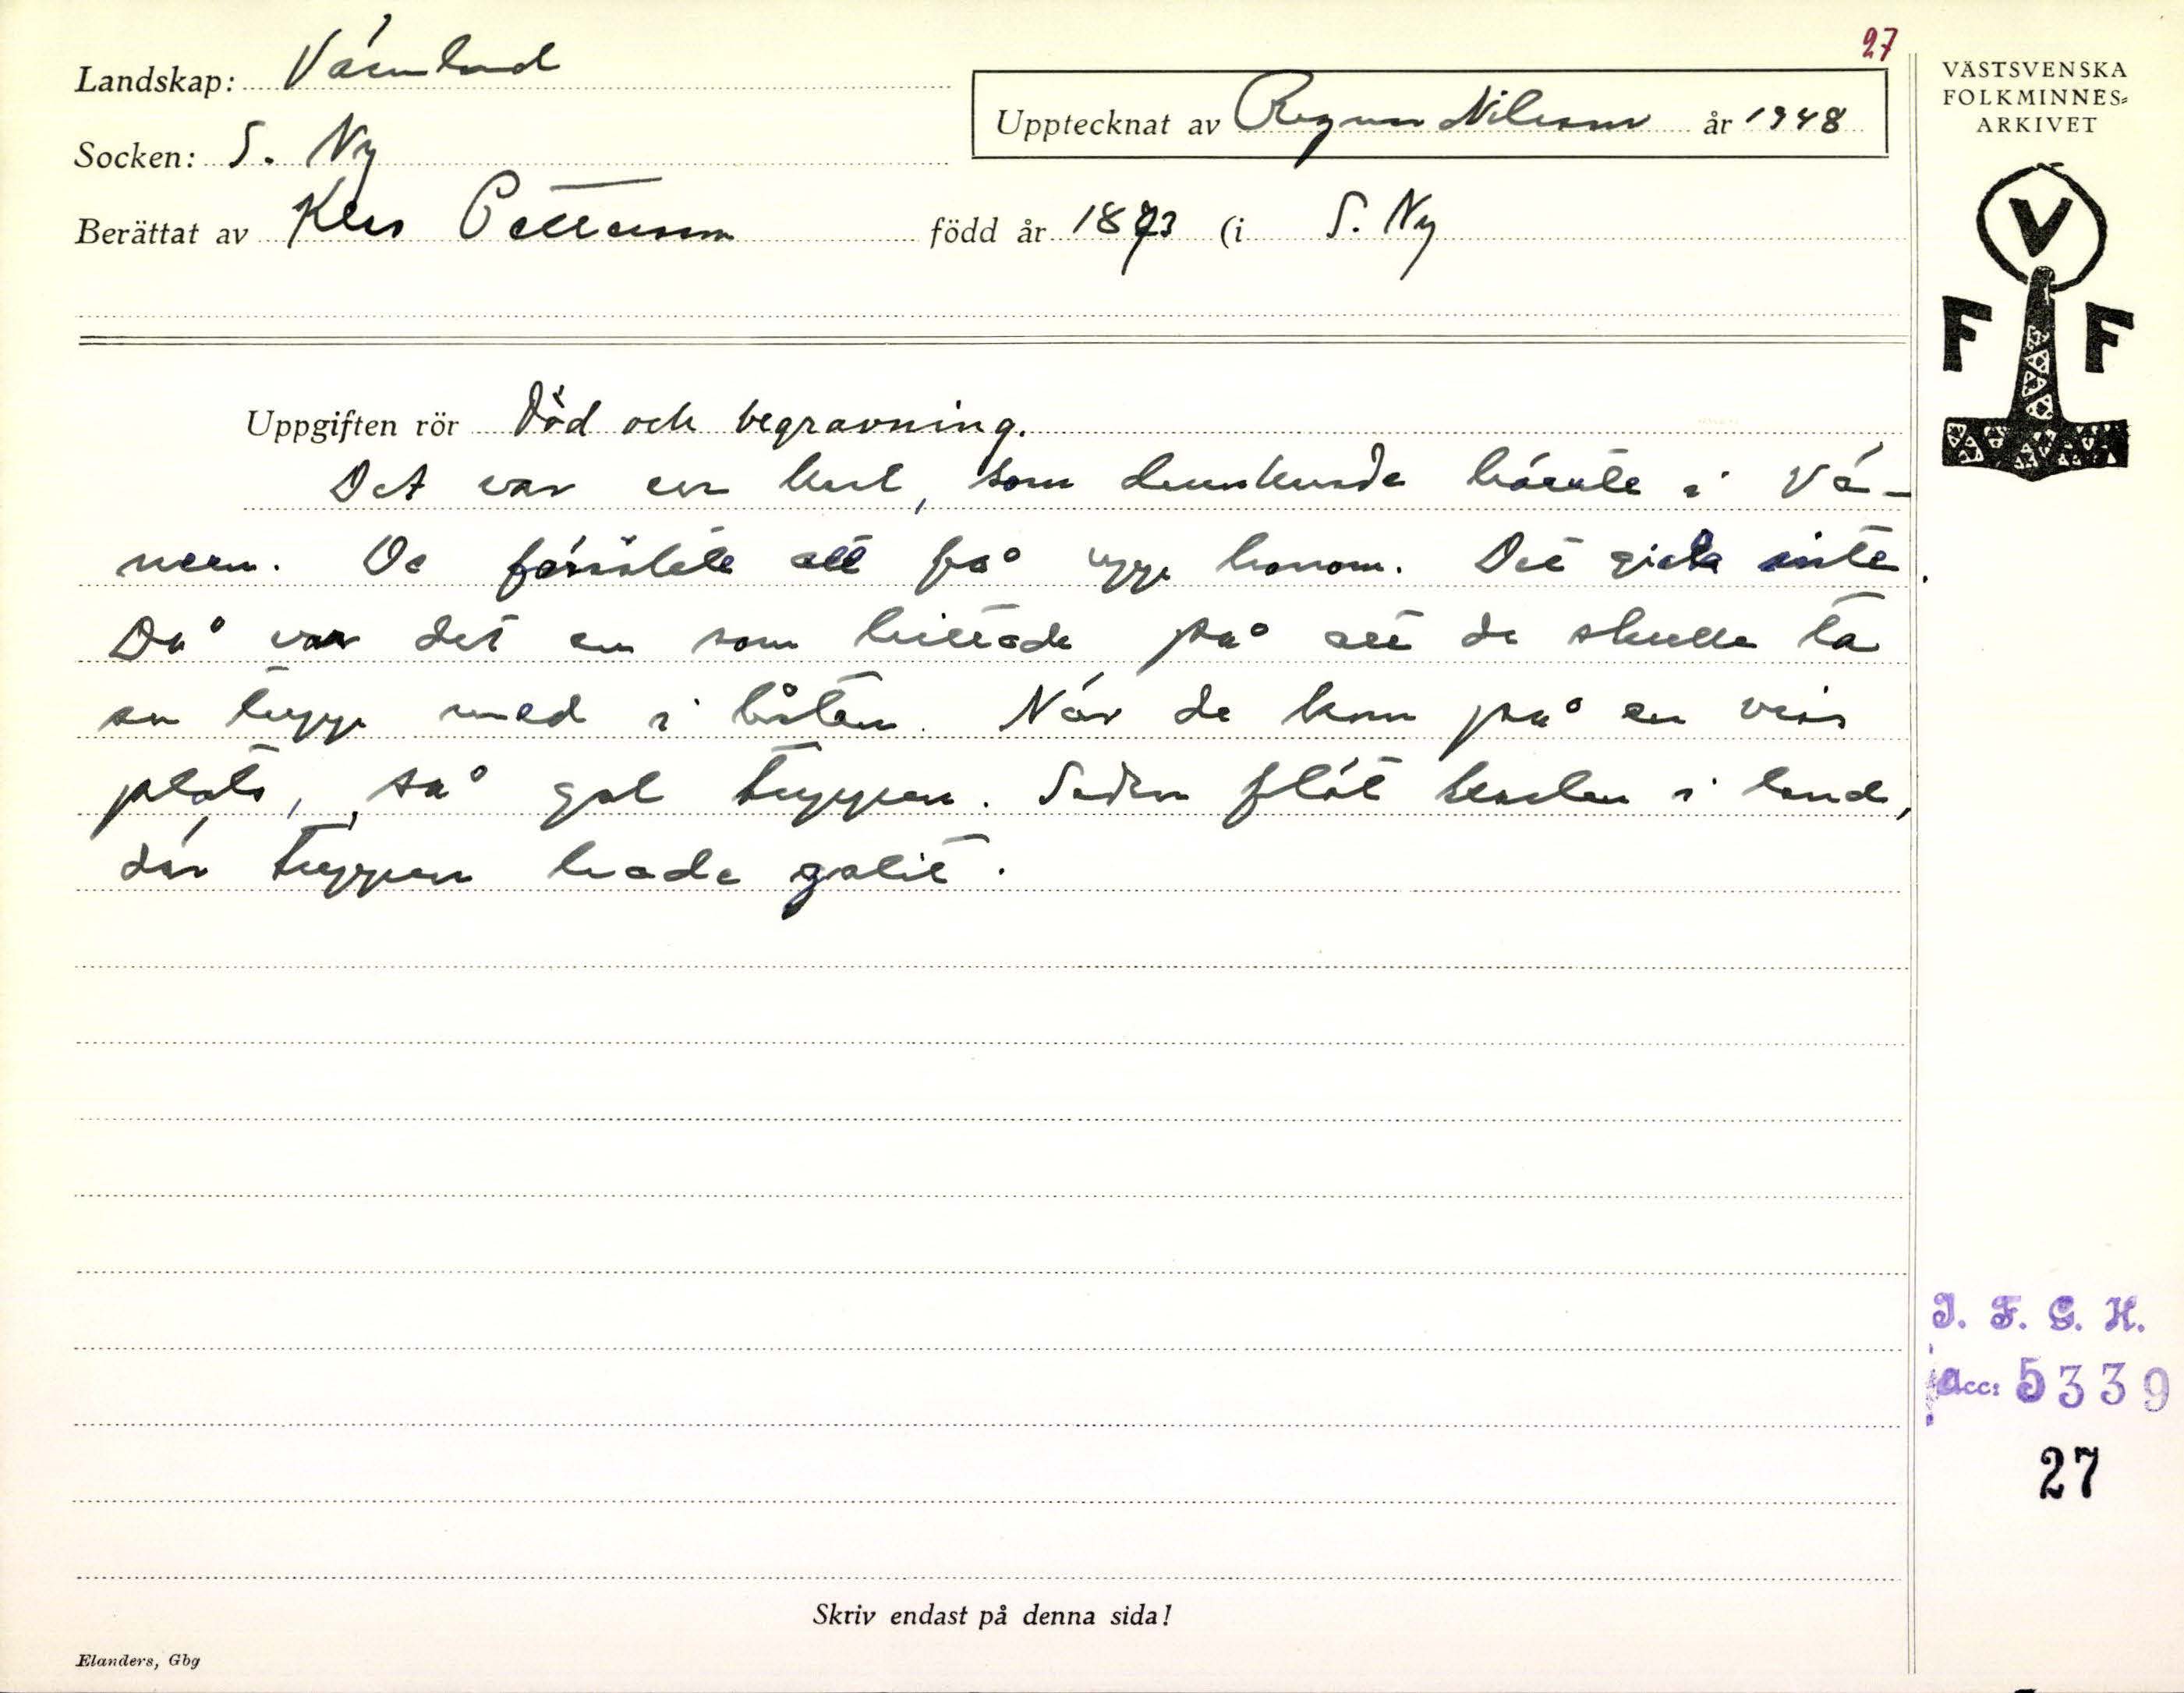 27
Landskap: Värmland
Upptecknat av Ragnar Nilsson år 1948
Socken: S. Ny
Berättat av Klas Pettersson född år 1873 (i S. Ny
VÄSTSVENSKA
FOLKMINNES=
ARKIVET
V
F F
Uppgiften rör Död och begravning.
Det var en karl, som drunknade härute i Vä-
nern. De försökte att få upp honom. Det gick inte.
Då var det en som hittade på att de skulle ta
en tupp med i båten. När de kom på en viss
plats, så gol tuppen. Sedan flöt karlen i land,
där tuppen hade galit.
I. F. G. H.
Acc: 5339
27
Skriv endast på denna sida!
Elanders, Gbg